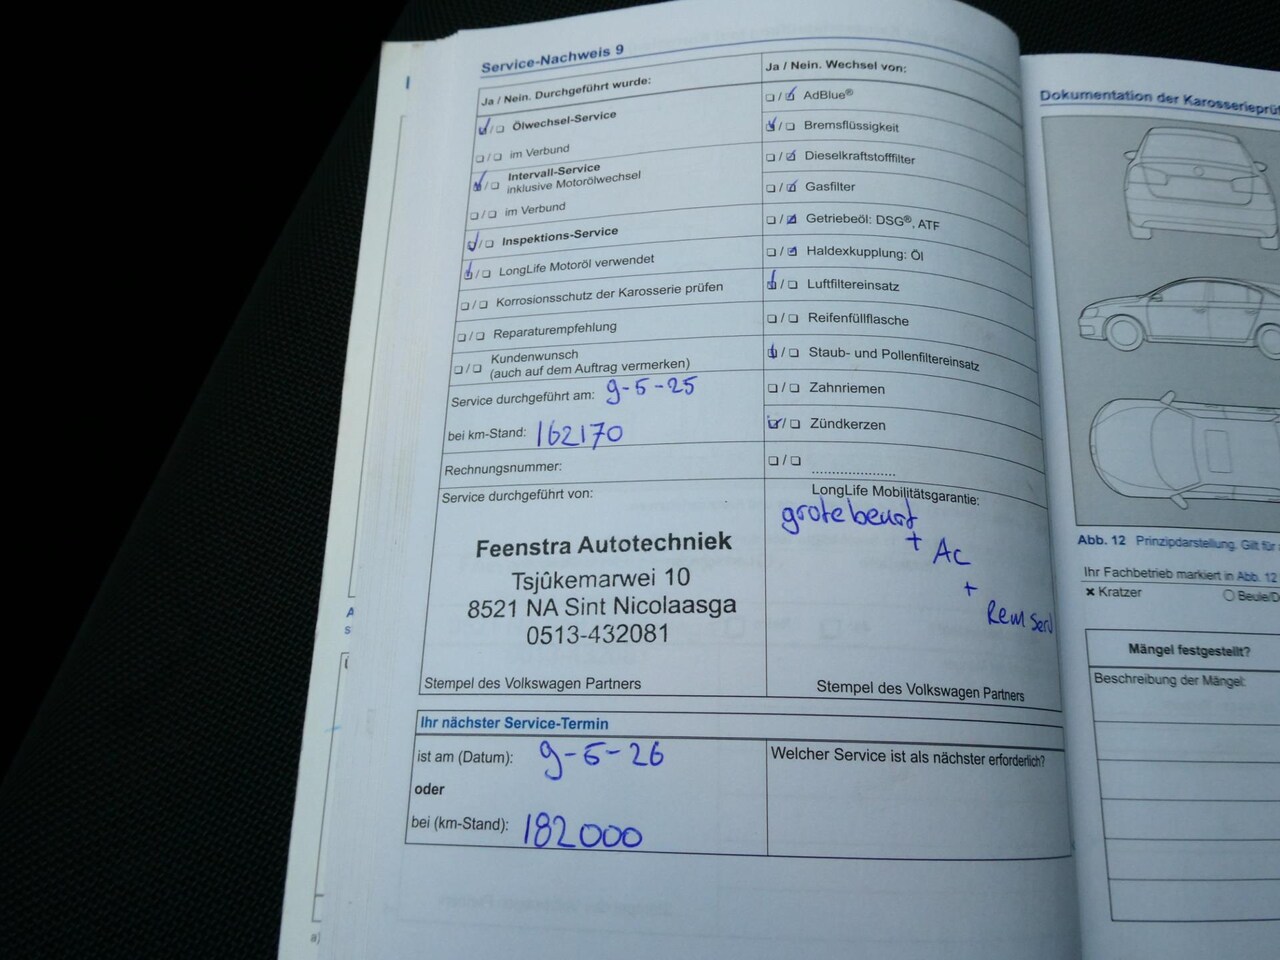 Service-Nachweis 9
Ja / Nein. Durchgeführt wurde:
☑/☐ Ölwechsel-Service
☐/☐ im Verbund
☑/☐ Intervall-Service
inklusive Motorölwechsel
☐/☐ im Verbund
☑/☐ Inspektions-Service
☑/☐ LongLife Motoröl verwendet
☐/☐ Korrosionsschutz der Karosserie prüfen
☐/☐ Reparaturempfehlung
☐/☐ Kundenwunsch
(auch auf dem Auftrag vermerken)
Service durchgeführt am: 9-5-25
bei km-Stand: 162170
Rechnungsnummer:
Service durchgeführt von:
Feenstra Autotechniek
Tsjûkemarwei 10
8521 NA Sint Nicolaasga
0513-432081
Stempel des Volkswagen Partners
Ja / Nein. Wechsel von:
☐/☑ AdBlue®
☑/☐ Bremsflüssigkeit
☐/☑ Dieselkraftstofffilter
☐/☑ Gasfilter
☐/☑ Getriebeöl: DSG®, ATF
☐/☑ Haldexkupplung: Öl
☑/☐ Luftfiltereinsatz
☐/☐ Reifenfüllflasche
☑/☐ Staub- und Pollenfiltereinsatz
☐/☐ Zahnriemen
☑/☐ Zündkerzen
☐/☐ ......................
LongLife Mobilitätsgarantie:
grote beurt
+ Ac
+
Rem serv
Stempel des Volkswagen Partners
Ihr nächster Service-Termin
ist am (Datum): 9-5-26
oder
bei (km-Stand): 182000
Welcher Service ist als nächster erforderlich?
Dokumentation der
Abb. 12 Prinzipdarstellung. Gilt für
Ihr Fachbetrieb markiert in Abb. 12
✗ Kratzer
○ Beule/D
Mängel festgestellt?
Beschreibung der Mängel:
a)